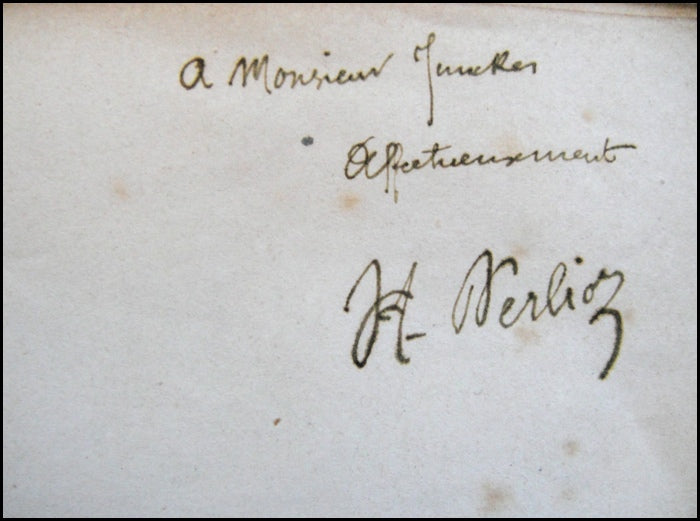 A Monsieur Juncker
Affectueusement
H. Berlioz